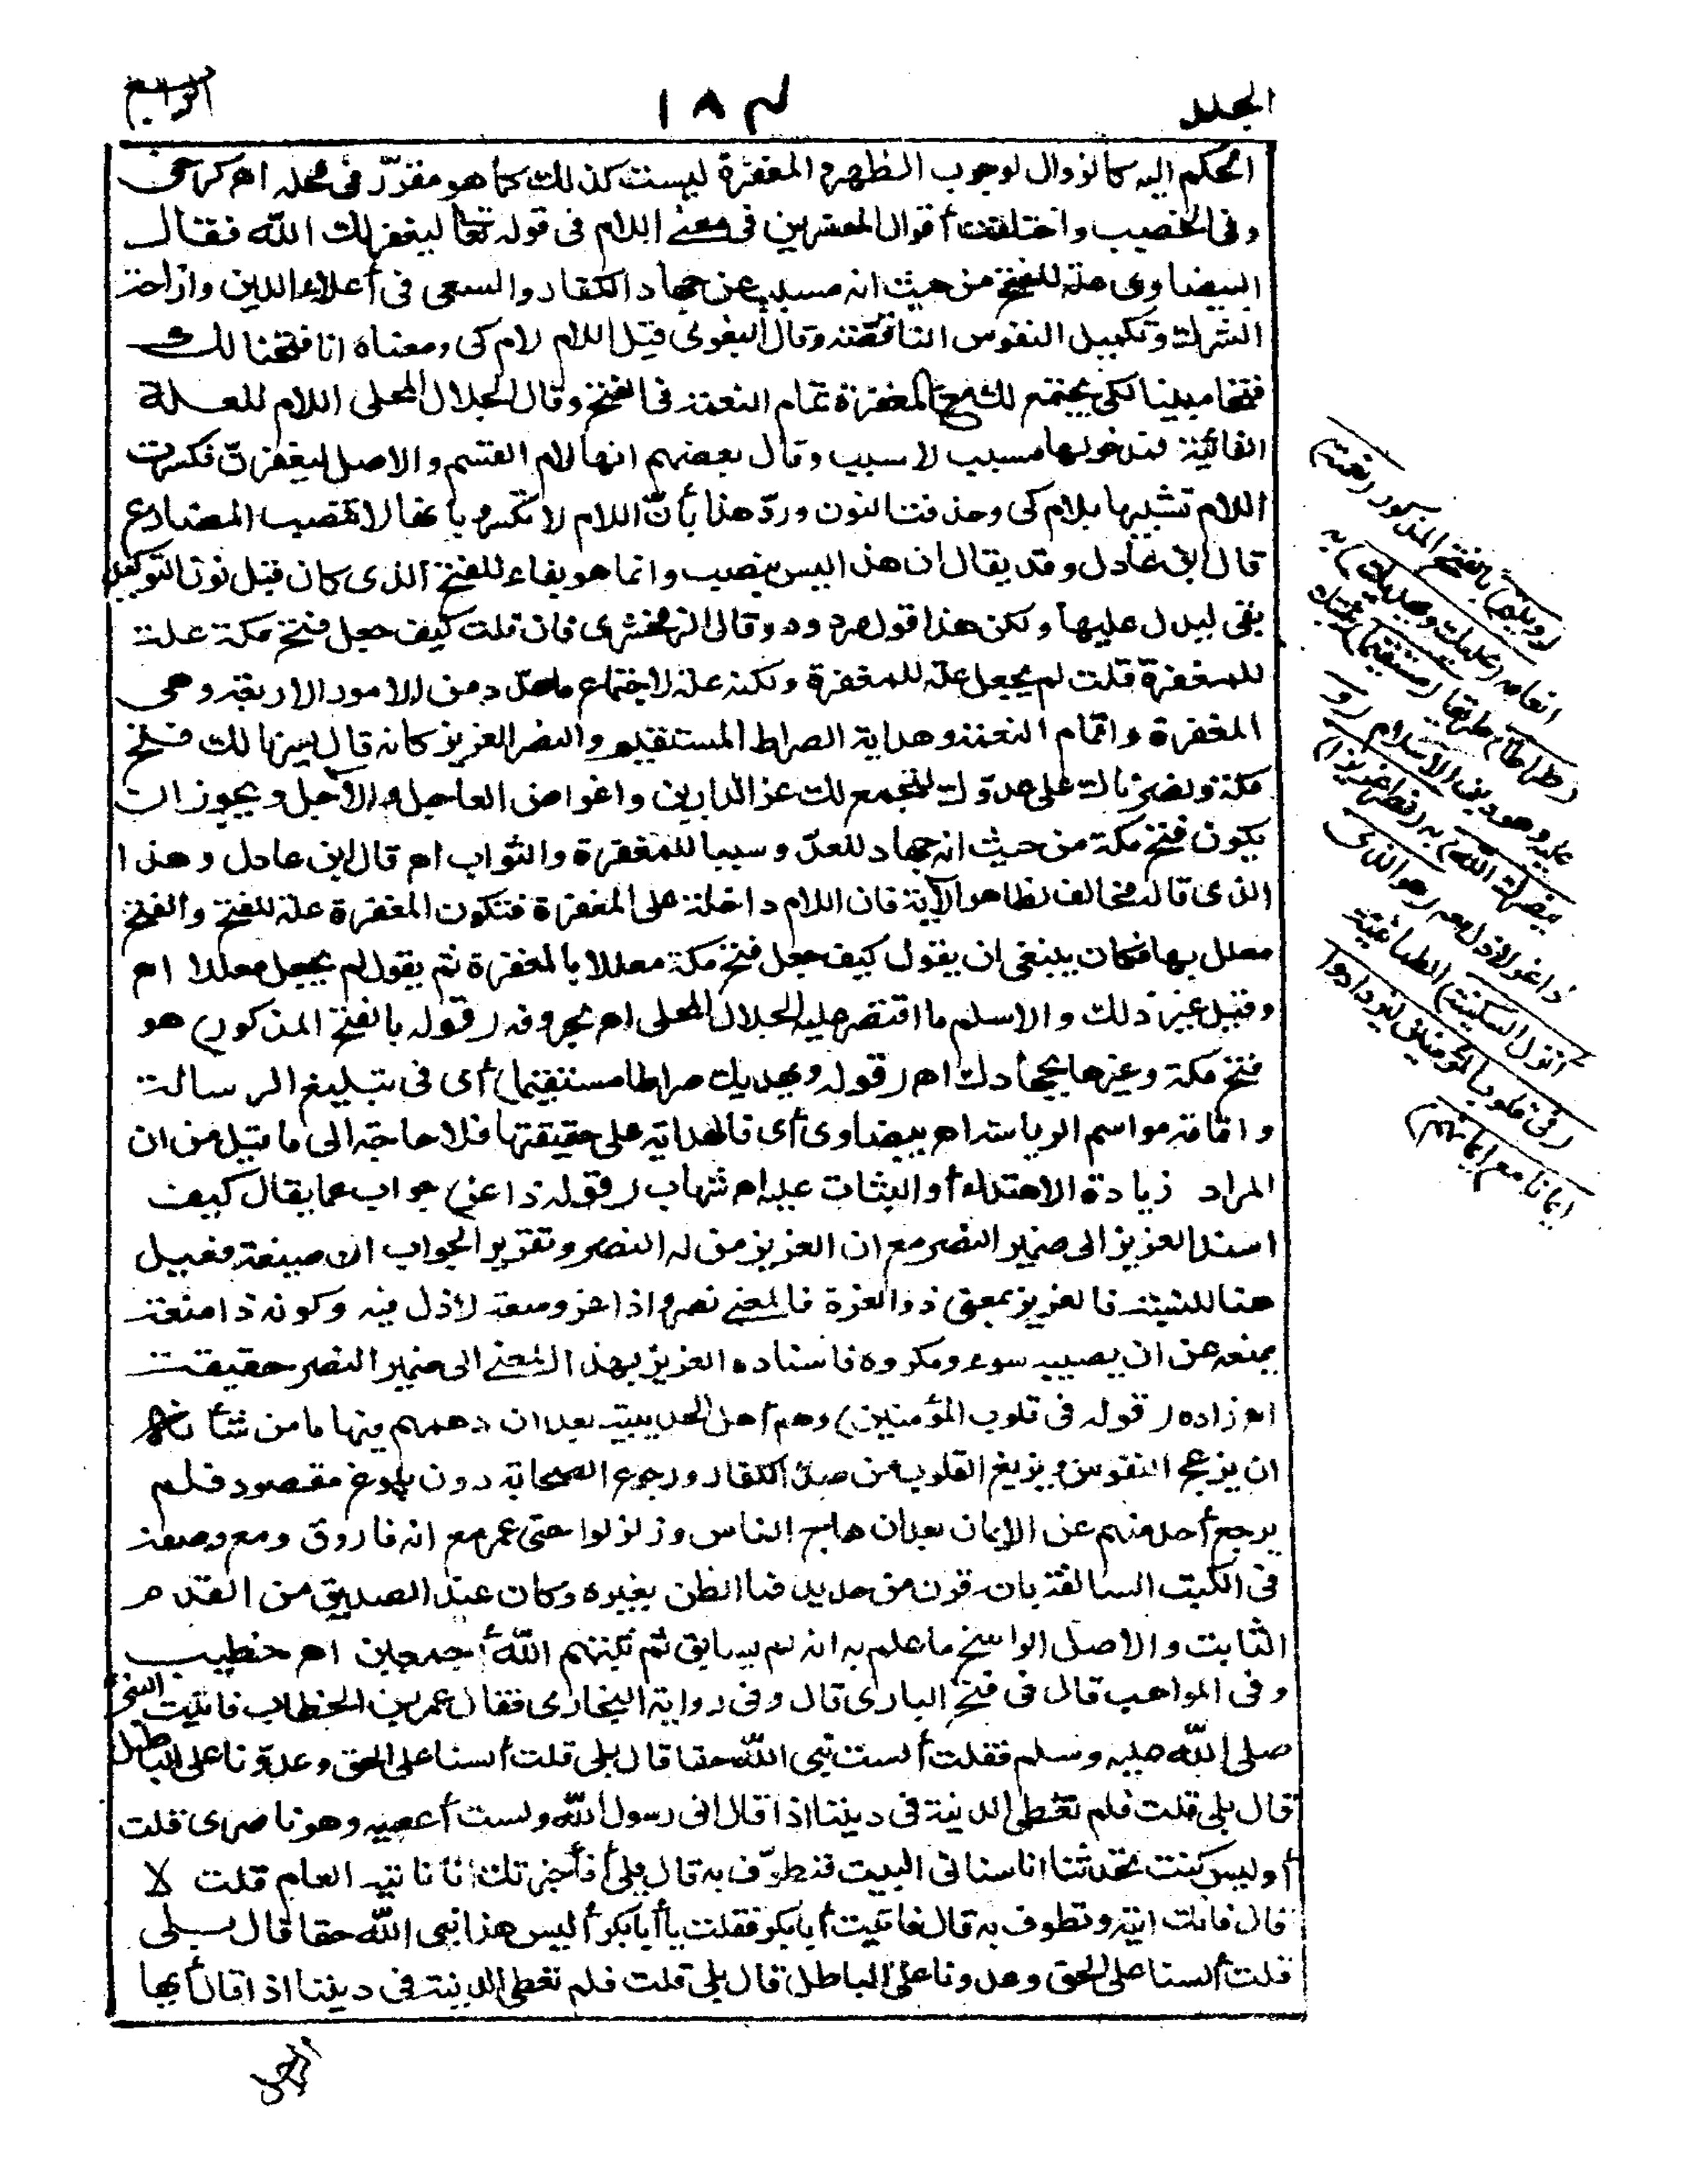 الجلد ١٨٣ الرابع
الحكم اليه كالزوال لوجوب الظهر والمغفرة ليست كذلك كما هو مقرّر فى محله اهـ كرخى
وفى الخطيب واختلفت أقوال المفسرين فى معنى اللام فى قوله تعالى ليغفر لك الله فقال
البيضاوى علة للفتح من حيث انه مسبب عن جهاد الكفار والسعى فى أعلاء الدين وازاحة
الشرك وتكميل النفوس الناقصة وقال البغوى قيل اللام لام كى ومعناه انا فتحنا لك
فتحا مبينا لكى يجتمع لك مع المغفرة تمام النعمة فى الفتح وقال الجلال المحلى اللام للعلة
الغائية فمدخولها مسبب لا سبب وقال بعضهم انها لام القسم والاصل ليغفرنّ فكسرت
اللام تشبيها بلام كى وحذفت النون وردّ هذا بأنّ اللام لا تكسر وبأنها لا تنصب المضارع
قال ابن عادل وقد يقال ان هذا ليس بنصب وانما هو بقاء للفتح الذى كان قبل نون التوكيد
بقى ليدل عليها ولكن هذا قول مردود وقال الزمخشرى فان قلت كيف جعل فتح مكة علة
للمغفرة قلت لم يجعل علة للمغفرة ولكنه علة لاجتماع ما عدّد من الامور الاربعة وهى
المغفرة واتمام النعمة وهداية الصراط المستقيم والنصر العزيز كانه قال يسرنا لك فتح
مكة ونصرناك على عدوّك لنجمع لك عز الدارين واغراض العاجل والآجل ويجوز ان
يكون فتح مكة من حيث انه جهاد للعدوّ سببا للمغفرة والثواب اهـ قال ابن عادل وهذا
الذى قاله مخالف لظاهر الآية فان اللام داخلة على المغفرة فتكون المغفرة علة للفتح والفتح
معلل بها فكان ينبغى ان يقول كيف جعل فتح مكة معللا بالمغفرة ثم يقول لم يجعل معللا اهـ
وقيل غير ذلك والاسلم ما اقتصر عليه الجلال المحلى اهـ بحروفه (قوله بالفتح المذكور) هو
فتح مكة وغيرها بجهادك اهـ (قوله ويهديك صراطا مستقيما) أى فى تبليغ الرسالة
واقامة مراسم الرياسة اهـ بيضاوى أى فالهداية على حقيقتها فلا حاجة الى ما قيل من ان
المراد زيادة الاهتداء أو الثبات عليه اهـ شهاب (قوله ذا عز) جواب عما يقال كيف
اسند العزيز الى ضمير النصر مع ان العزيز من له النصر وتقرير الجواب ان صيغة فعيل
هنا للنسبة فالعزيز بمعنى ذو العزة فالمعنى نصرا ذا عز ومنعة لا ذل فيه وكونه ذا منعة
يمنعه عن ان يصيبه سوء ومكروه فاسناده العزيز بهذا المعنى الى ضمير النصر حقيقة
اهـ زاده (قوله فى قلوب المؤمنين) وهم أهل الحديبية بعد ان دهمهم فيها ما من شأنه
ان يزعج النفوس ويزيغ القلوب من صدّ الكفار ورجوع الصحابة دون بلوغ مقصود فلم
يرجع أحد منهم عن الايمان بعد ان هاج الناس وزلزلوا حتى عمر مع انه فاروق ومع وصفه
فى الكتب السالفة بانه قرن من حديد فما الظن بغيره وكان عند الصديق من القدم
الثابت والاصل الراسخ ما علم به انه لم يسابق ثم ثبتهم الله أجمعين اهـ خطيب
وفى المواهب قال فى فتح البارى قال وفى رواية البخارى فقال عمر بن الخطاب فاتيت النبى
صلى الله عليه وسلم فقلت ألست نبى الله حقا قال بلى قلت ألسنا على الحق وعدوّنا على الباطل
قال بلى قلت فلم نعطى الدنية فى ديننا اذا قال انى رسول الله ولست أعصيه وهو ناصرى قلت
أوليس كنت تحدثنا انا سنأتى البيت فنطوّف به قال بلى أفأخبرتك انا نأتيه العام قلت لا
قال فانك اتيه وتطوف به قال فاتيت أبا بكر فقلت يا أبا بكر أليس هذا نبى الله حقا قال بلى
قلت ألسنا على الحق وعدونا على الباطل قال بلى قلت فلم نعطى الدنية فى ديننا اذا قال أيها
(ويتم) بالفتح المذكور (نعمته)
انعامه (عليك ويهديك) به
(صراطا) طريقا (مستقيما) يثبتك
عليه وهو دين الاسلام (و
ينصرك الله) به (نصرا عزيزا)
ذا عز لا ذل معه (هو الذى
أنزل السكينة) الطمأنينة
(فى قلوب المؤمنين ليزدادوا
ايمانا مع ايمانهم)
الرجل